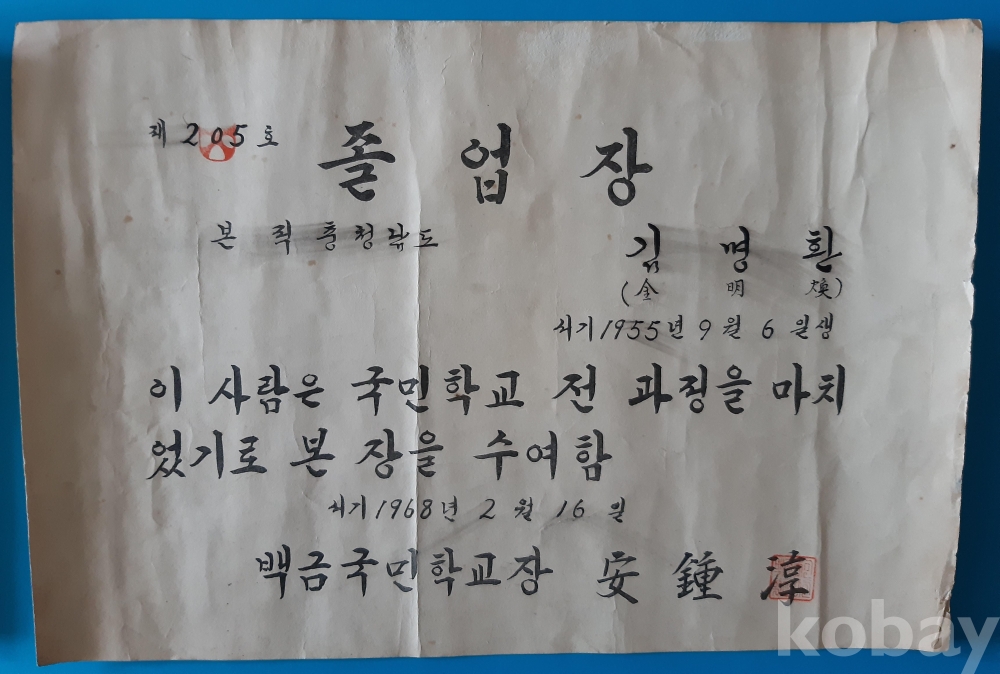 제 205 호
졸업장
본 적 충청남도
김 명 환
(金 明 煥)
서기 1955년 9월 6일생
이 사람은 국민학교 전 과정을 마치
었기로 본 장을 수여함
서기 1968년 2월 16일
백금국민학교장 安鍾淳
kobay